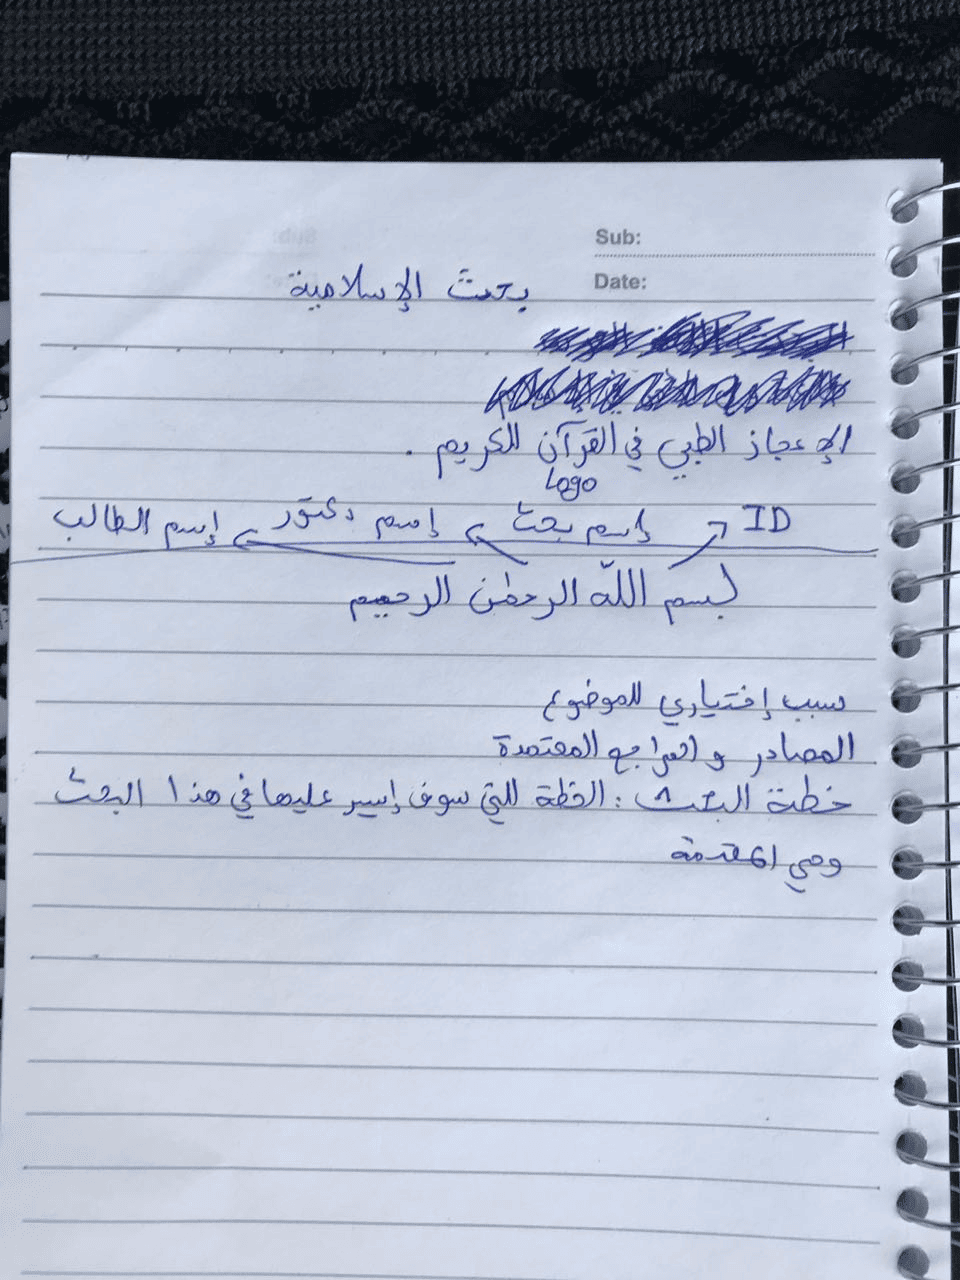 Sub:
Date:
بحث الإسلامية
الإعجاز الطبي في القرآن الكريم .
Logo
ID إسم بحث إسم دكتور إسم الطالب
بسم الله الرحمن الرحيم
سبب إختياري للموضوع
المصادر والمراجع المعتمدة
خطة البحث : الخطة التي سوف إسير عليها في هذا البحث
وهي المقدمة